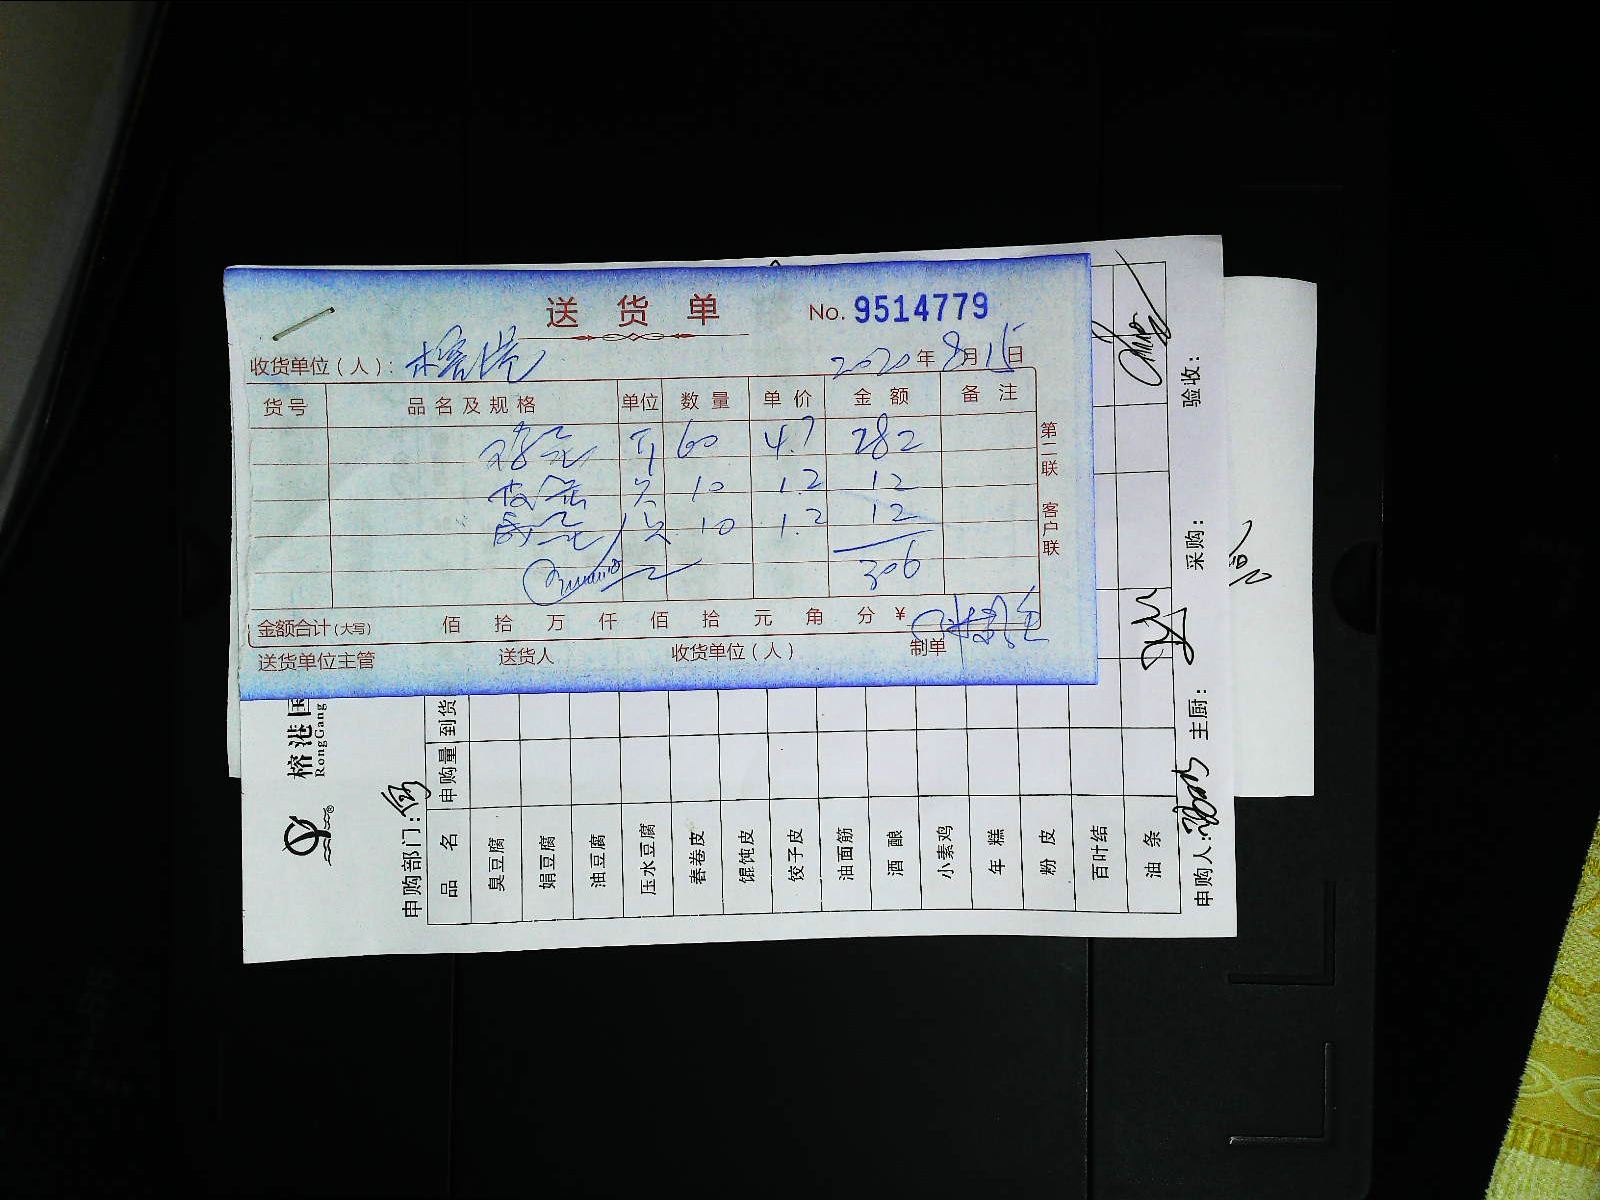 送货单 No. 9514779
收货单位（人）: 榕港 2020年8月15日
货号 品名及规格 单位 数量 单价 金额 备注
鸡蛋 斤 60 4.7 282
皮蛋 只 10 1.2 12
咸蛋 只 10 1.2 12
306
金额合计(大写) 佰 拾 万 仟 佰 拾 元 角 分 ¥
送货单位主管 送货人 收货单位（人） 制单
第二联 客户联
榕港国
RongGang
申购部门:
品名 申购量 到货
臭豆腐
娟豆腐
油豆腐
压水豆腐
春卷皮
馄饨皮
饺子皮
油面筋
酒酿
小素鸡
年糕
粉皮
百叶结
油条
申购人: 主厨: 采购: 验收: